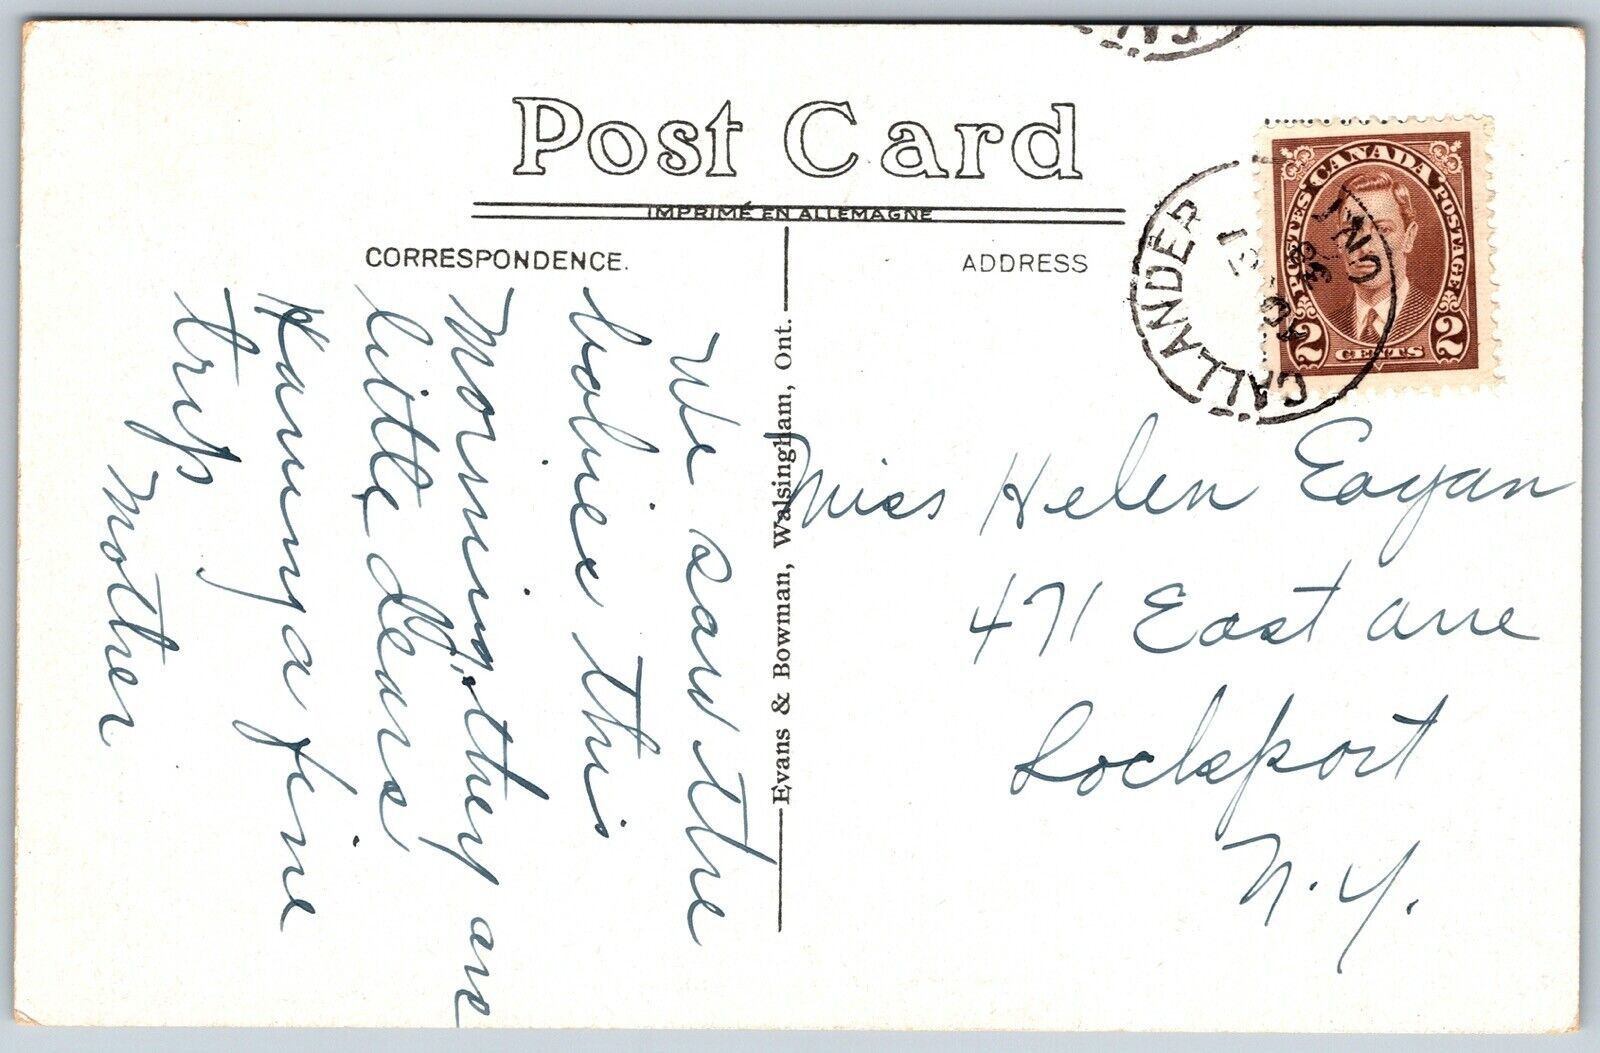 Post Card
IMPRIMÉ EN ALLEMAGNE
CORRESPONDENCE.
ADDRESS
We saw the
babies this
Morning, they are
little dears
Having a fine
trip
Mother
Evans & Bowman, Walsingham, Ont.
CALLANDER
ONT
38
CANADA
POSTES
POSTAGE
2 CENTS 2
Miss Helen Eagan
471 East Ave
Lockport
N.Y.